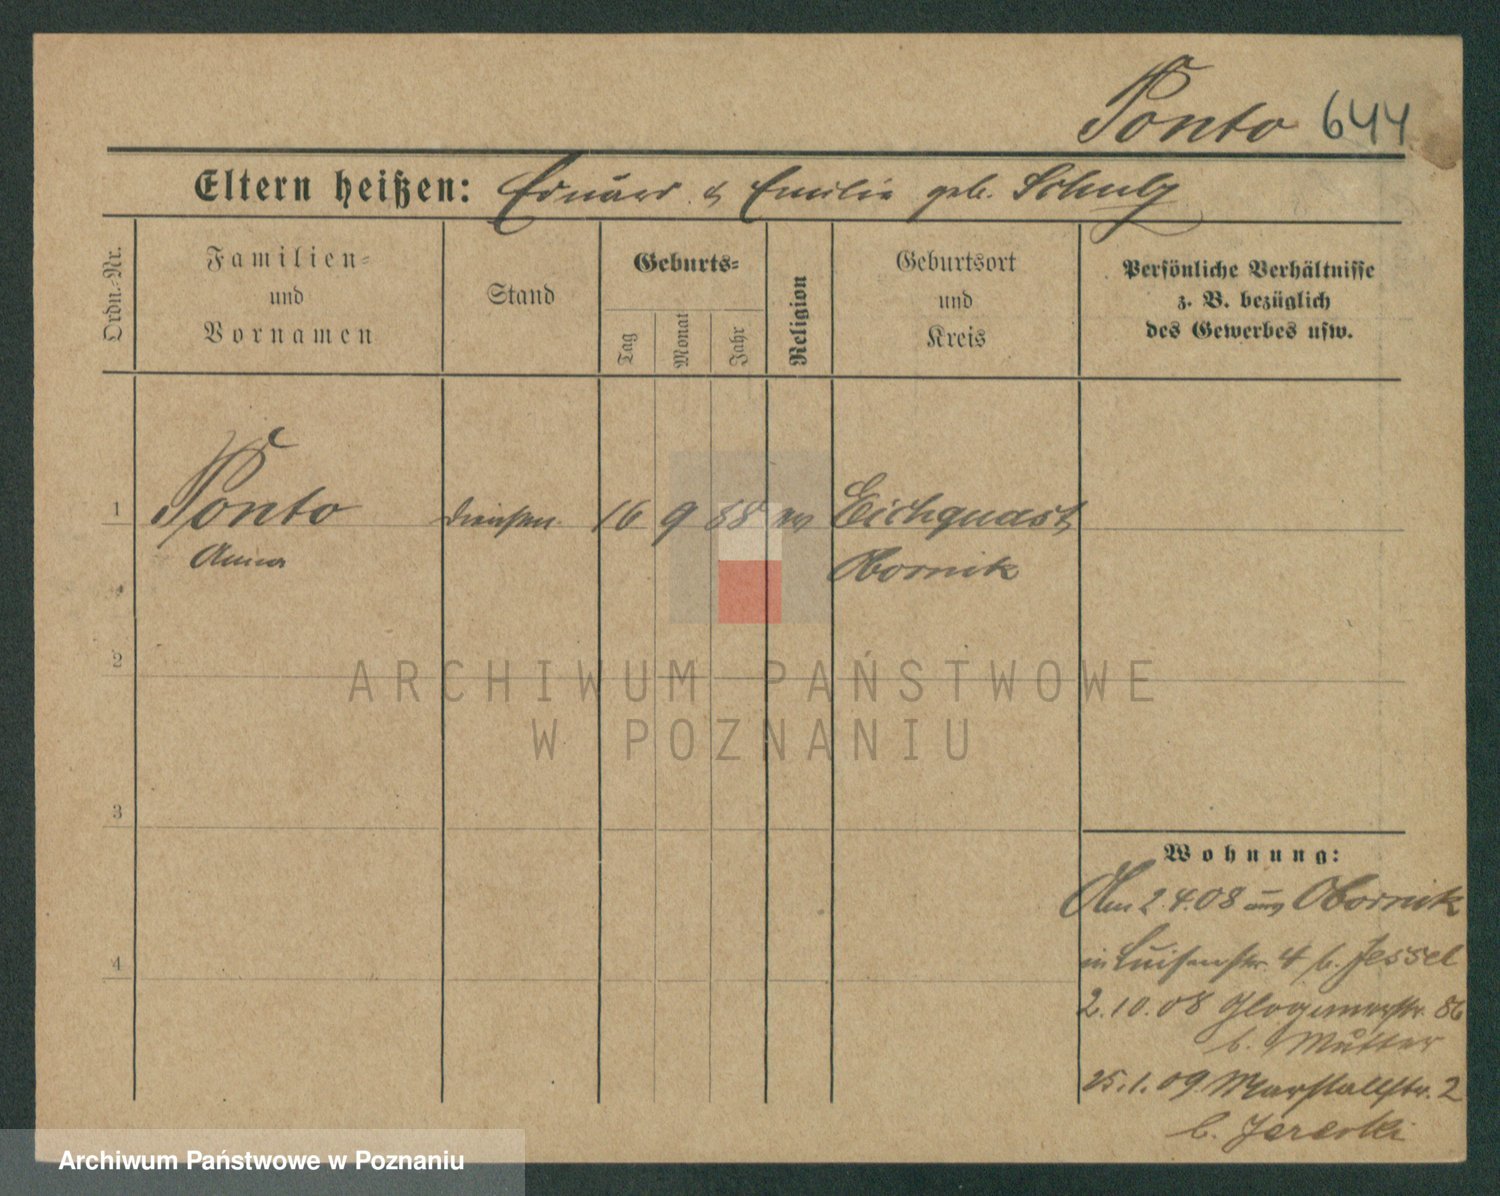 Ponto 644
Eltern heißen: Eduard & Emilie geb. Schulz
Ordn.-Nr.
Familien-
und
Vornamen
Stand
Geburts-
Tag
Monat
Jahr
Religion
Geburtsort
und
Kreis
Persönliche Verhältnisse
z. B. bezüglich
des Gewerbes usw.
1 Ponto 16 9 88 ev Eichquast
Anna Obornik
2
3
4
ARCHIWUM PAŃSTWOWE
W POZNANIU
Wohnung:
Am 2.4.08 aus Obornik
in Luisenstr. 4 b. Jessel
2.10.08 Glogauerstr. 86
b. Mutter
25.1.09 Marstallstr. 2
b.
Archiwum Państwowe w Poznaniu